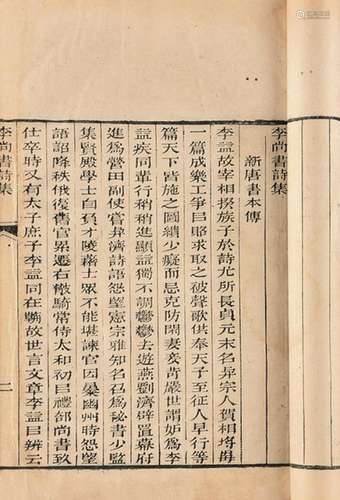 李尚書詩集
新唐書本傳
李益故宰相揆族子於詩尤所長貞元末名與宗人賀相埒每
一篇成樂工爭㠯賂求取之被聲歌供奉天子至征人早行等
篇天下皆施之圖繢少癡而忌克防閑妻妾苛嚴世謂妒為李
益疾同輩行稍稍進顯益獨不調鬱鬱去遊燕劉濟辟置幕府
進為營田副使嘗與濟詩語怨望憲宗雅知名召為秘書少監
集賢殿學士自負才陵藉士眾不能堪諫官因暴幽州時怨望
語詔降秩俄復舊官累遷右散騎常侍太和初㠯禮部尚書致
仕卒時又有太子庶子李益同在朝故世言文章李益㠯辨云
李尚書詩集
二